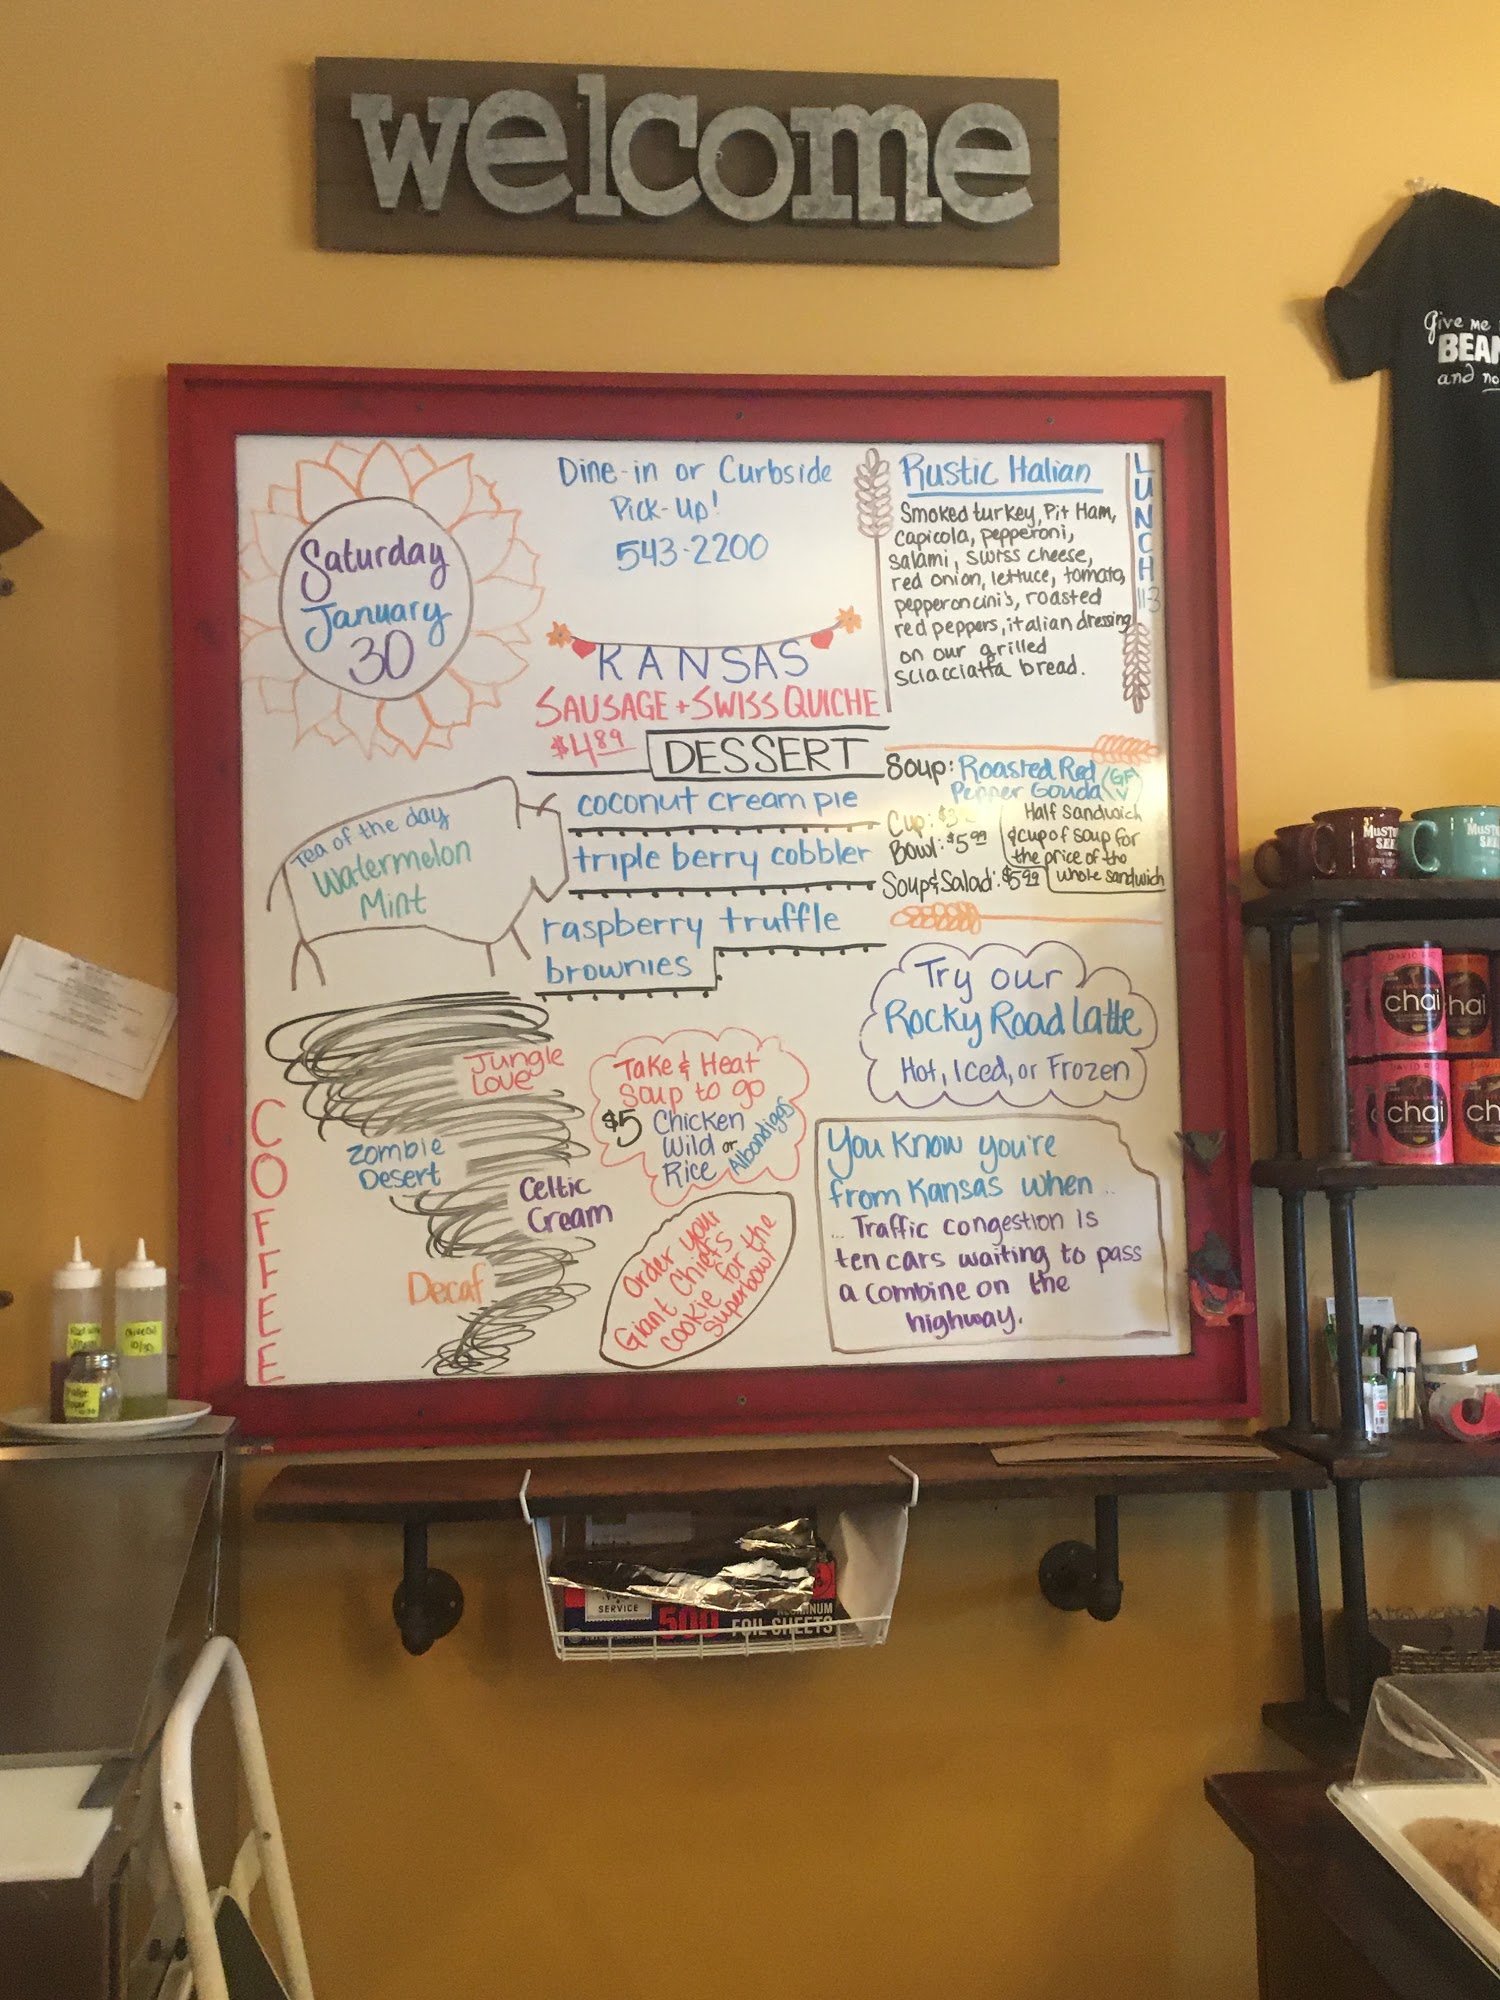 welcome
Saturday
January
30
Dine-in or Curbside
Pick-Up!
543-2200
KANSAS
SAUSAGE + SWISS QUICHE
$4.89
DESSERT
coconut cream pie
triple berry cobbler
raspberry truffle
brownies
Tea of the day
Watermelon
Mint
LUNCH
Rustic Italian
Smoked turkey, Pit Ham,
capicola, pepperoni,
salami, swiss cheese,
red onion, lettuce, tomato,
pepperoncini's, roasted
red peppers, italian dressing
on our grilled
sciacciatta bread.
Soup: Roasted Red
Pepper Gouda
(GF
V)
Cup:
Bowl: $5.99
Soup & Salad: $5.99
Half Sandwich
& cup of soup for
the price of the
whole sandwich
Try our
Rocky Road Latte
Hot, Iced, or Frozen
COFFEE
Jungle
Love
Zombie
Desert
Celtic
Cream
Decaf
Take & Heat
Soup to go
$5 Chicken
Wild or
Rice
Albondigas
Order your
Giant Chiefs
cookie for the
Superbowl
You know you're
from Kansas when ..
... Traffic congestion is
ten cars waiting to pass
a combine on the
highway.
Give me
BEAN
and no
chai
hai
DAVID RIO
chai
ch
SERVICE
500
FOIL SHEETS